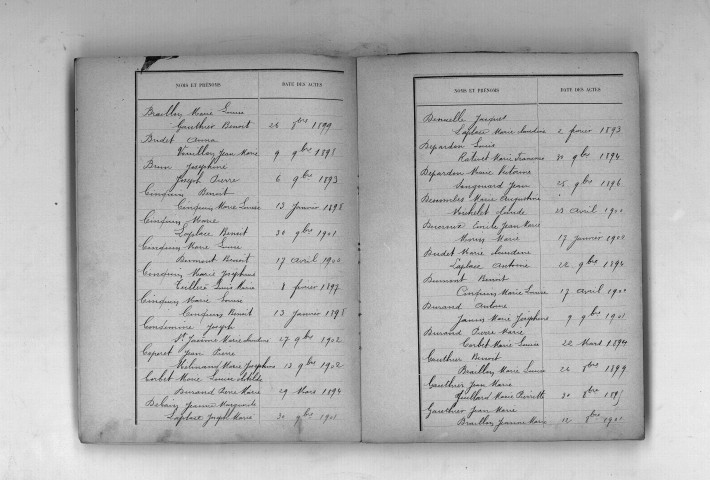 NOMS ET PRÉNOMS DATE DES ACTES
Braillon Marie Louise
Gauthier Benoit 26 8bre 1899
Budet Anna
Vouillon Jean Marie 9 9bre 1895
Brun Joséphine
Joseph Pierre 6 9bre 1893
Cinquin Benoit
Cinquin Marie Louise 13 Janvier 1898
Cinquin Marie
Laplace Benoit 30 9bre 1901
Cinquin Marie Louise
Dumont Benoit 17 avril 1900
Cinquin Marie Joséphine
Louis Marie 8 fevrier 1897
Cinquin Marie Louise
Cinquin Benoit 13 Janvier 1898
Condemine Joseph
St Jacôme Marie Claudine 27 9bre 1902
Coperet Jean Pierre
Marie Joséphine 13 9bre 1902
Corbet Marie Louise Clotilde
Durand Pierre Marie 29 Mars 1894
Jeanne Marguerite
Laplace Joseph Marie 30 9bre 1901
NOMS ET PRÉNOMS DATE DES ACTES
Jacques
Laplace Marie Claudine 2 fevrier 1893
Depardon Louis
Marie Francoise 30 9bre 1894
Depardon Marie Victorine
Sangouard Jean 25 9bre 1896
Descombes Marie Augustine
Claude 23 avril 1900
Emile Jean Marie
Marie 17 Janvier 1900
Budet Marie Claudine
Laplace Antoine 22 9bre 1894
Dumont Benoit
Cinquin Marie Louise 17 avril 1900
Durand Antoine
Janin Marie Joséphine 9 9bre 1901
Durand Pierre Marie
Corbet Marie Louise 22 Mars 1894
Gauthier Benoit
Braillon Marie Louise 26 8bre 1899
Gauthier Jean Marie
Guillard Marie Pierrette 30 8bre 1895
Gauthier Jean Marie
Braillon Jeanne Marie 12 8bre 1901